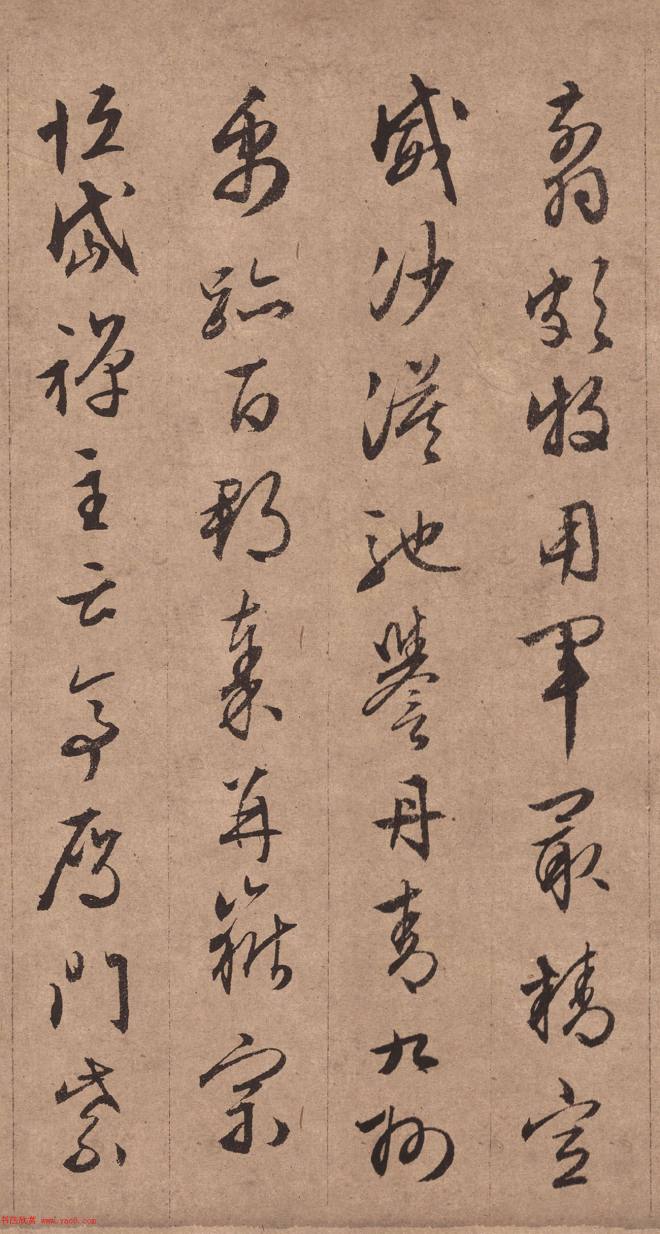 翦頗牧用軍最精宣
威沙漠馳譽丹青九州
禹跡百郡秦并嶽宗
恒岱禪主云亭雁門紫
书法欣赏 www.yac8.com